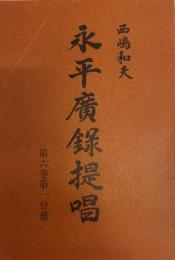 西嶋和夫
永平廣錄提唱
第六巻第一分冊